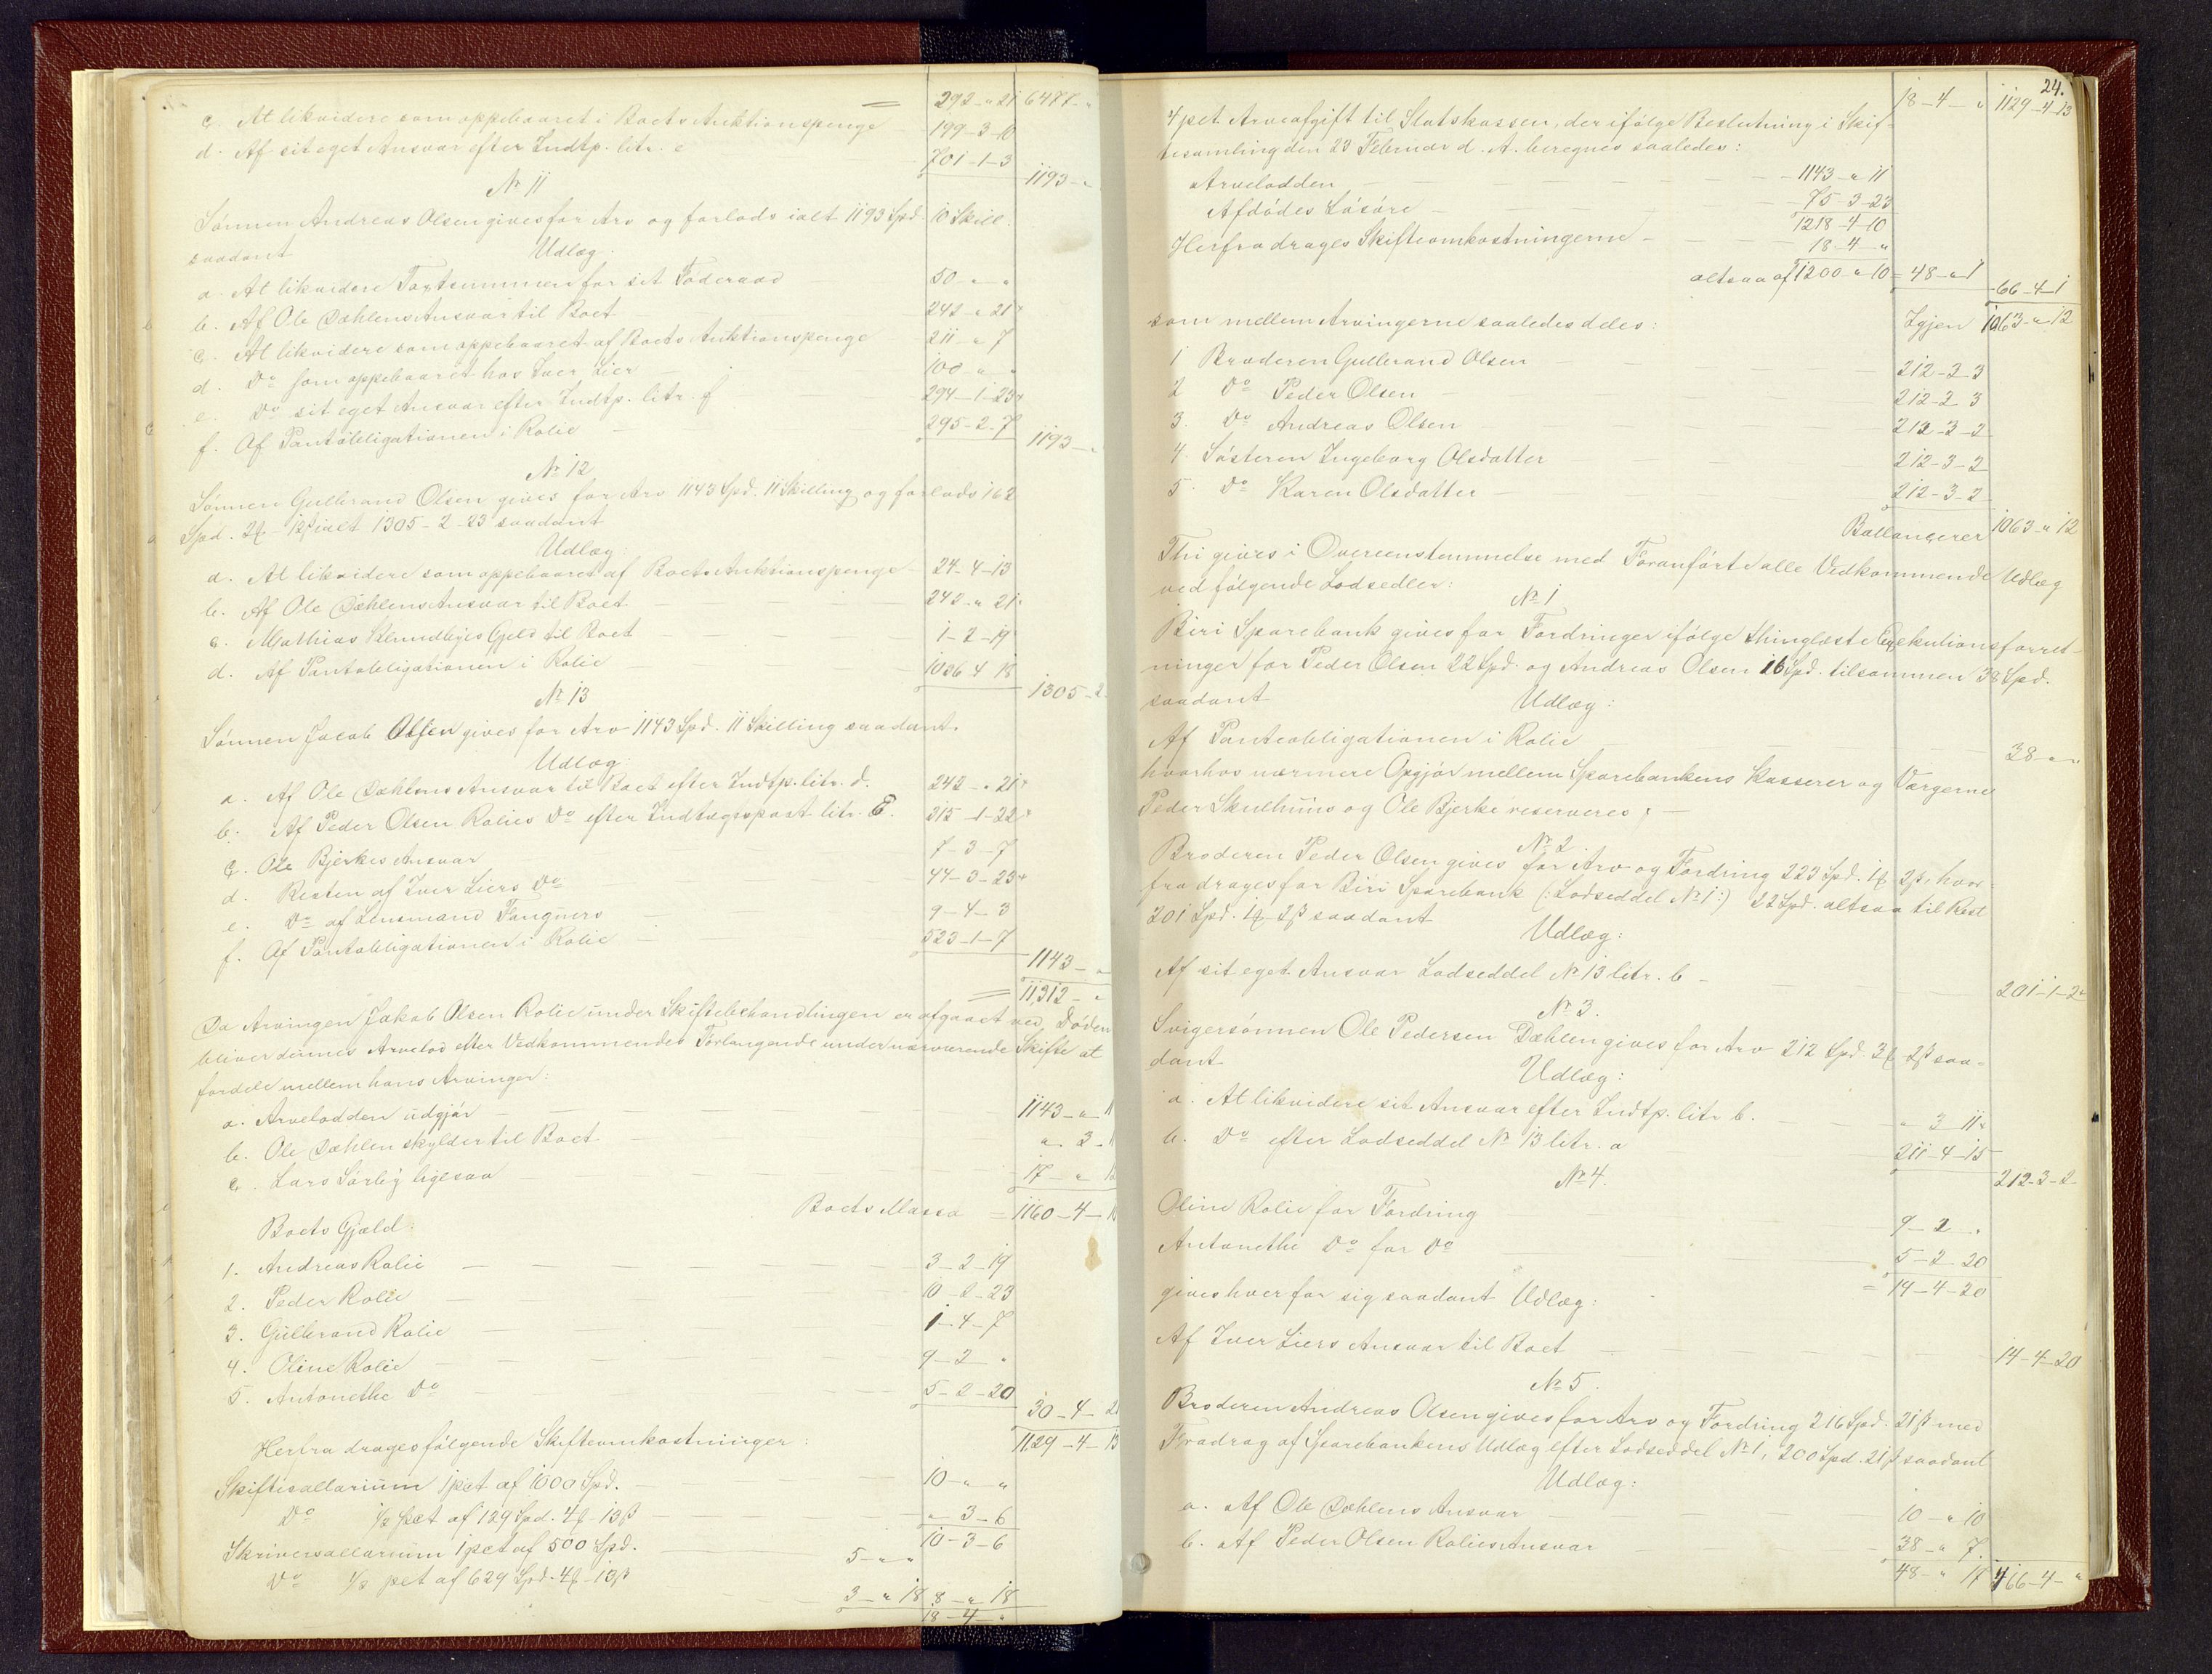 292 - " 21 6477 - "
c. At likvidere som oppebaaret i Boets Auktionspenge 199 - 3 - 10
d. Af sit eget Ansvar efter Indtp. litr. e 701 - 1 - 3
1193 - "
No 11
Sønnen Andreas Olsen gives for Arv og forlods ialt 1193 Spd. 10 Skill.
saadant Udlæg:
a. At likvidere Taxtsummen for sit Föderaad 50 - " - "
b. Af Ole Dæhlens Ansvar til Boet 242 - " 21
c. At likvidere som oppebaaret af Boets Auktionspenge 211 " 7
d. Do som oppebaaret hos Iver Lier 100 - " - "
e. Do sit eget Ansvar efter Indtp. litr. f 294 - 1 - 23
f. Af Pantobligationen i Rolie 295 - 2 - 7
1193 - "
No 12
Sønnen Gulbrand Olsen gives for Arv 1143 Spd. 11 Skilling og forlods 162
Spd. 2 - 12 ialt 1305 - 2 - 23 saadant
Udlæg:
a. At likvidere som oppebaaret af Boets Auktionspenge 24 - 4 - 13
b. Af Ole Dæhlens Ansvar til Boet 242 - " 21
c. Mathias Gjeld til Boet 1 - 2 - 19
d. Af Pantobligationen i Rolie 1036 4 18
1305 - 2
No 13
Sønnen Jacob Olsen gives for Arv 1143 Spd. 11 Skilling saadant
Udlæg:
a. Af Ole Dæhlens Ansvar til Boet efter Indtp. litr. d. 242 - " 21
b. Af Peder Olsen Rolies Do efter Indtægtspost litr. E. 315 - 1 - 22
c. Ole Bjerkes Ansvar 7 - 3 - 7
d. Resten af Iver Liers Do 44 - 3 - 23
e. Do af Lensmand Fangners 9 - 4 - 3
f. Af Pantobligationen i Rolie 523 - 1 - 7
1143 - "
= 11,312 - "
Da Arvingen Jakob Olsen Rolie under Skiftebehandlingen er afgaaet ved Døden
bliver dennes Arvelod efter Vedkommendes Forlangende under nærværende Skifte at
fordele mellem hans Arvinger:
a. Arvelodden udgjør 1143 - " 11
b. Ole Dæhlen skylder til Boet " 3 - 11
c. Lars Sørby ligesaa 17 - "
Boets Masse = 1160 - 4 -
Boets Gjæld:
1. Andreas Rolie 3 - 2 - 19
2. Peder Rolie 10 - 2 - 23
3. Gulbrand Rolie 1 - 4 - 7
4. Oline Rolie 9 - 2 - "
5. Antonethe Do 5 - 2 - 20
30 - 4 - 21
1129 - 4 - 13
Herfra drages følgende Skifteomkostninger:
Skiftesallarium 1 pct af 1000 Spd. 10 - " "
Do 1/2 pct af 129 Spd. 4 - 13 ß " 3 - 6
10 - 3 - 6
Skriversallarium 1 pct af 500 Spd. 5 - " "
Do 1/2 pct af 629 Spd. 4 - 13 ß 3 - " 18 8 - " 18
18 - 4 - "
24.
18 - 4 - " 1129 - 4 - 13
4 pct Arveafgift til Statskassen, der ifølge Beslutning i Skif-
tesamling den 23 Februar d. A. beregnes saaledes:
Arvelodden 1143 - " 11
Afdødes Løsøre 75 - 3 - 23
1218 - 4 - 10
Herfra drages Skifteomkostningerne 18 - 4 - "
altsaa af 1200 " 10 = 48 - " 1
66 - 4 - 1
Igjen 1063 - " 12
som mellem Arvingerne saaledes deles:
1 Broderen Gulbrand Olsen 212 - 3 3
2 Do Peder Olsen 212 - 2 3
3. Do Andreas Olsen 212 - 3 - 2
4. Søsteren Ingeborg Olsdatter 212 - 3 - 2
5. Do Karen Olsdatter 212 - 3 - 2
Ballancerer 1063 - " 12
Thi gives i Overeensstemmelse med Foranførte alle Vedkommende Udlæg
ved følgende Lodsedler:
No 1
Biri Sparebank gives for Fordringer ifølge thinglæste Exekutionsforret-
ninger for Peder Olsen 22 Spd. og Andreas Olsen 16 Spd. tilsammen 38 Spd.
saadant Udlæg:
Af Panteobligationen i Rolie 38 - " "
hvorhos nærmere Opgjør mellem Sparebankens Kasserer og Værgerne
Peder Skulhuus og Ole Bjerke reserveres;
No 2.
Broderen Peder Olsen gives for Arv og Fordring 223 Spd. 1 - 2 ß, hvor-
fra drages for Biri Sparebank (: Lodseddel No 1 :) 22 Spd. altsaa til Rest
201 Spd. 1 - 2 ß saadant
Udlæg:
Af sit eget Ansvar Lodseddel No 13 litr. b 201 - 1 - 2
No 3.
Svigersønnen Ole Pedersen Dæhlen gives for Arv 212 Spd. 3 - 2 ß saa-
dant Udlæg:
a. At likvidere sit Ansvar efter Indtp. litr b. " 3 11
b. Do efter Lodseddel No 13 litr. a 211 - 4 - 15
212 - 3 - 2
No 4.
Oline Rolie for Fordring 9 - 2 "
Antonethe Do for Do 5 - 2 20
= 14 - 4 - 20
gives hver for sig saadant Udlæg:
Af Iver Liers Ansvar til Boet 14 - 4 - 20
No 5.
Broderen Andreas Olsen gives for Arv og Fordring 216 Spd. 21 ß med
Fradrag af Sparebankens Udlæg efter Lodseddel No 1, 200 Spd. 21 ß saadant
Udlæg:
a. Af Ole Dæhlens Ansvar 10 - " 10
b. Af Peder Olsen Rolies Ansvar 38 - " 7
48 - " 17 466 - 4 - "